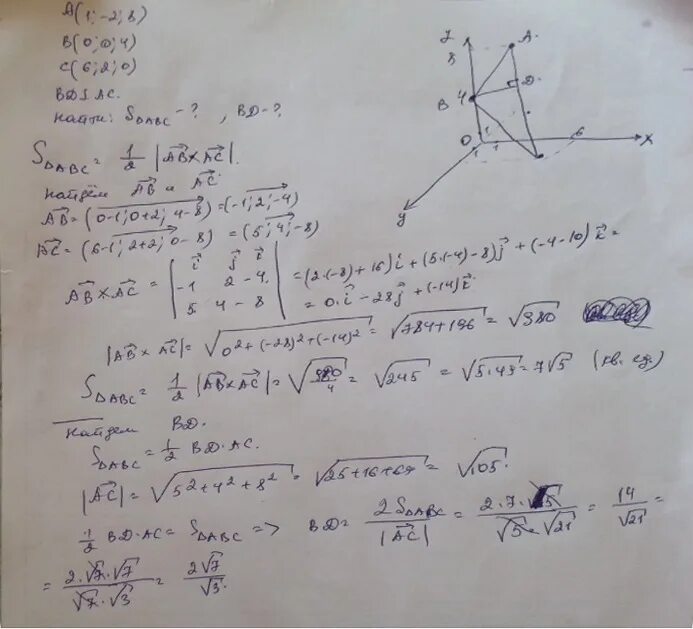 A(1; -2; 8)
B(0; 0; 4)
C(6; 2; 0)
BD⊥AC.
найти: S△ABC - ? , BD - ?
S△ABC = 1/2 |AB×AC|.
найдём AB и AC
AB = (0-1; 0+2; 4-8) = (-1; 2; -4)
AC = (6-1; 2+2; 0-8) = (5; 4; -8)
AB×AC = | i j k ; -1 2 -4 ; 5 4 -8 | = (2·(-8)+16)i + (5·(-4)-8)j + (-4-10)k =
= 0·i - 28j + (-14)k
|AB×AC| = √(0²+(-28)²+(-14)²) = √(784+196) = √980
S△ABC = 1/2 |AB×AC| = √(980/4) = √245 = √(5·49) = 7√5 (кв. ед.)
найдем BD.
S△ABC = 1/2 BD·AC.
|AC| = √(5²+4²+8²) = √(25+16+64) = √105.
1/2 BD·AC = S△ABC => BD = 2S△ABC/|AC| = 2·7·√5/(√5·√21) = 14/√21 =
= 2·√7·√7/(√7·√3) = 2√7/√3.
z
8
A.
B 4
D.
O
1
1
1
6
x
y